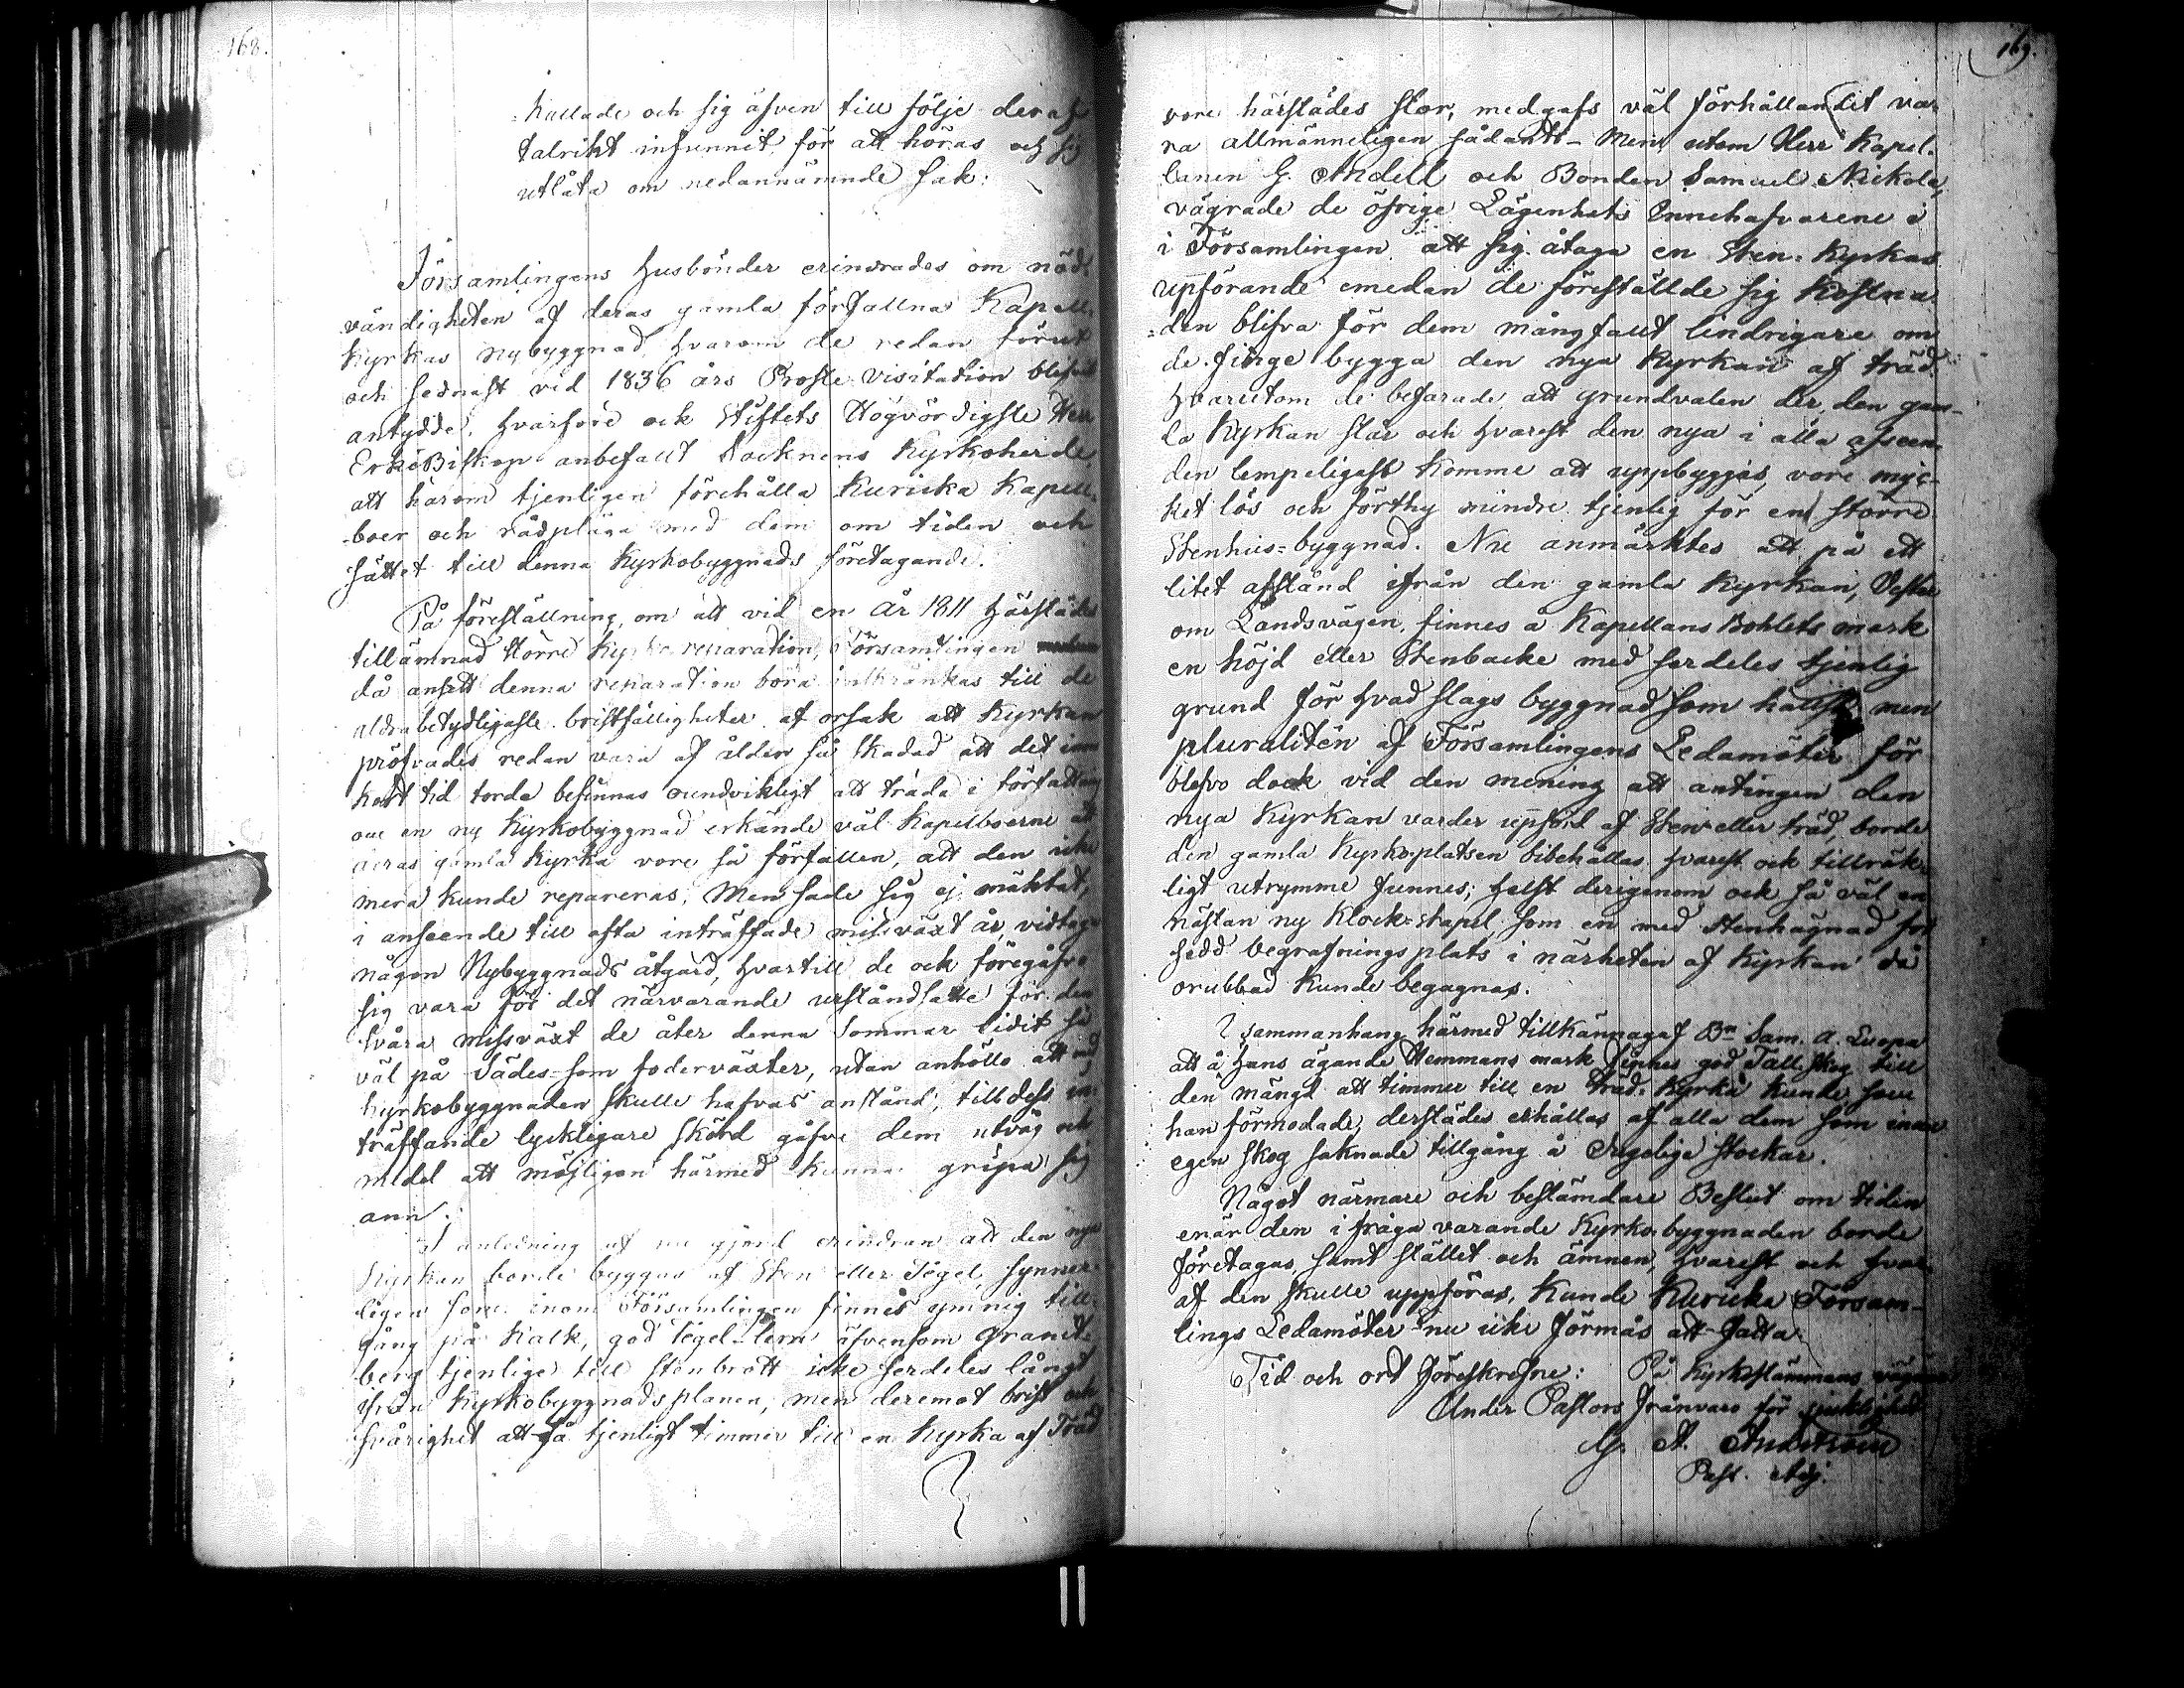 168.
kallade och sig äfven till följe deraf
talrikt infunnit för att höras och sig
utlåta om nedannämnde sak:
Församlingens husbönder erindrades om nöd-
vändigheten af deras gamla förfallna Kapell
kyrkas nybyggnad hvarom de redan förut
och sednast vid 1836 års Proste visitation blefvit
antydde, hvarföre ock Stiftets Högvördigste Herr
ErkeBiskop anbefallt Socknens Kyrkoherde,
att härom tjenligen förehålla Kuricka Kapell-
boer och rådpläga med dem om tiden och
sättet till denna Kyrkobyggnads företagande.
På föreställning, om att vid en År 1811 härstädes
tillämnad större Kyrko reparation, Församlingen
då ansett denna reparation böra inskränkas till de
aldrabetydligaste bristfälligheter af orsak att Kyrkan
pröfvades redan vara af ålder så skadad att det inom
kort tid torde befinnas oundvikligt att träda i författning
om en ny Kyrkobyggnad erkände väl Kapellboerne att
deras gamla Kyrka vore så förfallen, att den icke
mera kunde repareras, Men sade sig ej mäktat,
i anseende till ofta inträffade missväxt år, vidtaga
någon Nybyggnads åtgärd, hvartill de ock föregåfvo
sig vara för det närvarande urståndsatte för den
svåra missväxt de åter denna Sommar lidit så
väl på Sädes- som foderväxter, utan anhöllo att med
Kyrkobyggnaden skulle hafvas anstånd, till dess in-
träffande lyckligare skörd gåfve dem utväg och
medel att möjligen härmed kunna gripa sig
ann.
I anledning af nu gjord erindran att den nya
Kyrkan borde byggas af Sten eller Tegel, synner-
ligen som inom Församlingen finnes ymnig till-
gång på Kalk, god Tegel-lera äfvensom Granit-
berg tjenlige till stenbrott icke serdeles långt
ifrån Kyrkobyggnadsplanen, men deremot brist och
svårighet att få tjenligt timmer till en Kyrka af Träd
169.
vore härstädes stor, medgafs väl förhållandet va-
ra allmänneligen sådant - Men utom Herr Kapel-
lanen G. Andell och Bonden Samuel Nickola,
vägrade de öfrige Lägenhets Innehafvarene i
i Församlingen att sig åtaga en Sten-Kyrkas
uppförande emedan de föreställde sig kostna-
den blifva för dem mångfallt lindrigare om
de finge bygga den nya Kyrkan af träd.
Hvarutom de befarade att grundvalen der den gam-
la Kyrkan står och hvarest den nya i alla afseen-
den lempeligast komme att uppbyggas, vore myc-
ket lös och förthy mindre tjenlig för en större
Stenhus-byggnad. Nu anmärktes att på ett
litet afstånd ifrån den gamla Kyrkan, Vester
om Landsvägen, finnes å Kapellans Bohlets mark
en höjd eller Stenbacke med serdeles tjenlig
grund för hvad slags byggnad som hällst, men
pluralitén af Församlingens Ledamöter för
blefvo dock vid den mening att antingen den
nya Kyrkan varder uppförd af Sten eller träd, borde
den gamla Kyrkoplatsen bibehållas hvarest ock tillräk-
ligt utrymme funnes; helst derigenom ock så väl en
nästan ny Klock-stapel, som en med Stenhägnad för
sedd begrafningsplats i närheten af Kyrkan då
orubbad kunde begagnas.
I sammanhang härmed tillkännagaf Bn Sam. A. Luopa
att å hans ägande Hemmans mark finnes god Tall-skog till
den mängd att timmer till en träd-Kyrka kunde som
han förmodade, derstädes erhållas af alla dem som inom
egen skog saknade tillgång å dugelige stockar.
Något närmare och bestämdare Beslut om tiden
enär den i fråga varande Kyrko-byggnaden borde
företagas, samt stället och ämnen, hvarest och hvar-
af den skulle uppföras, kunde Kuricka Försam-
lings Ledamöter nu icke förmås att fatta.
Tid och ort föreskrefne: På Kyrkostämmans vägnar
Under Pastors frånvaro för sjuklighet
G. A. Andström
Past. Adj.